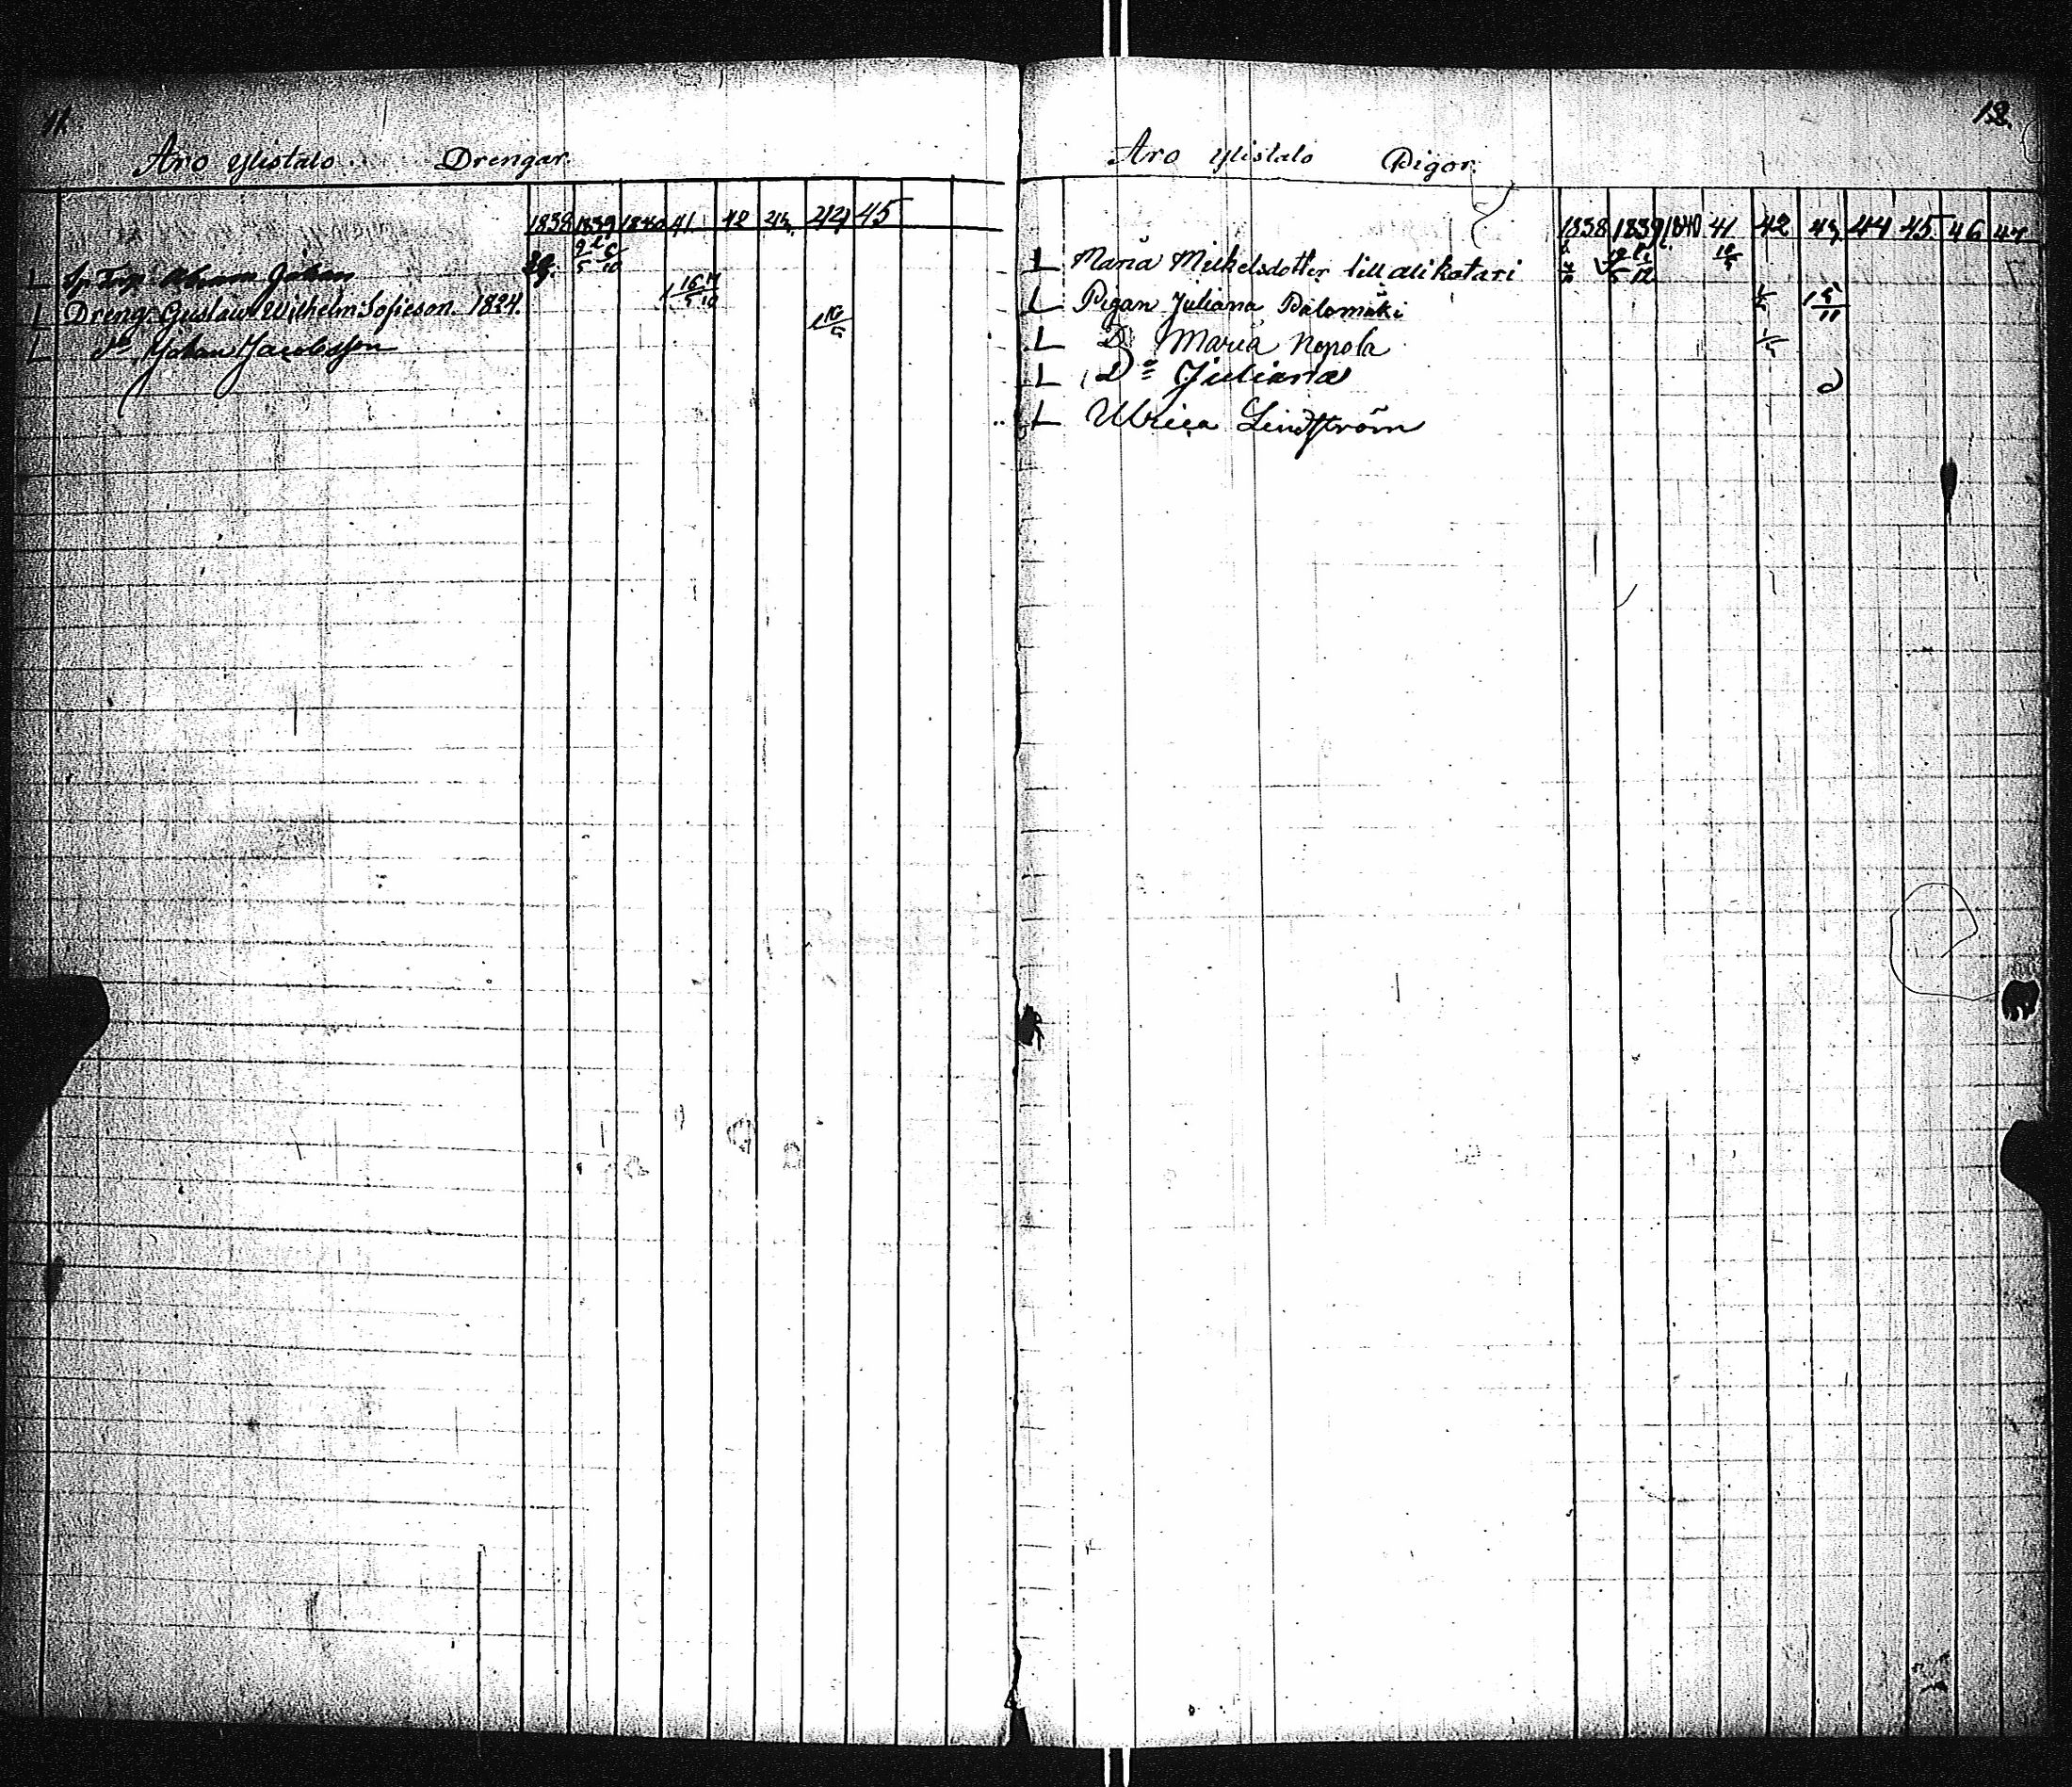 11.
Aro Ylistalo. Drengar.
1838 1839 1840 41 42 43. 44 45
L Abram Johan
L Dreng. Gustaw Wilhelm Sofieson. 1824.
L Do Johan Jacobsson
12.
Aro Ylistalo Pigor.
1838 1839 1840 41 42 43 44 45 46 47
L Maria Mickelsdotter till alikatari
L Pigan Juliana Palomäki
L D Maria Nopola
L Do Juliana
L Ulrica Lindström